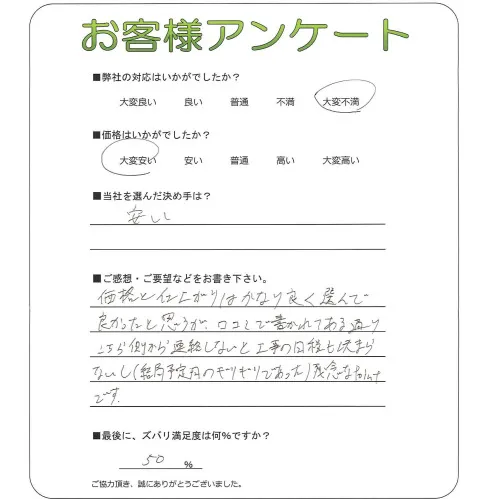 お客様アンケート
■弊社の対応はいかがでしたか？
大変良い 良い 普通 不満 大変不満
■価格はいかがでしたか？
大変安い 安い 普通 高い 大変高い
■当社を選んだ決め手は？
安い
■ご感想・ご要望などをお書き下さい。
価格と仕上がりはかなり良く選んで
良かったと思うが、口コミで書かれてある通り
こちら側から連絡しないと工事の日程も決まら
ないし(結局予定月のギリギリであった)残念な
です。
■最後に、ズバリ満足度は何%ですか？
50 %
ご協力頂き、誠にありがとうございました。